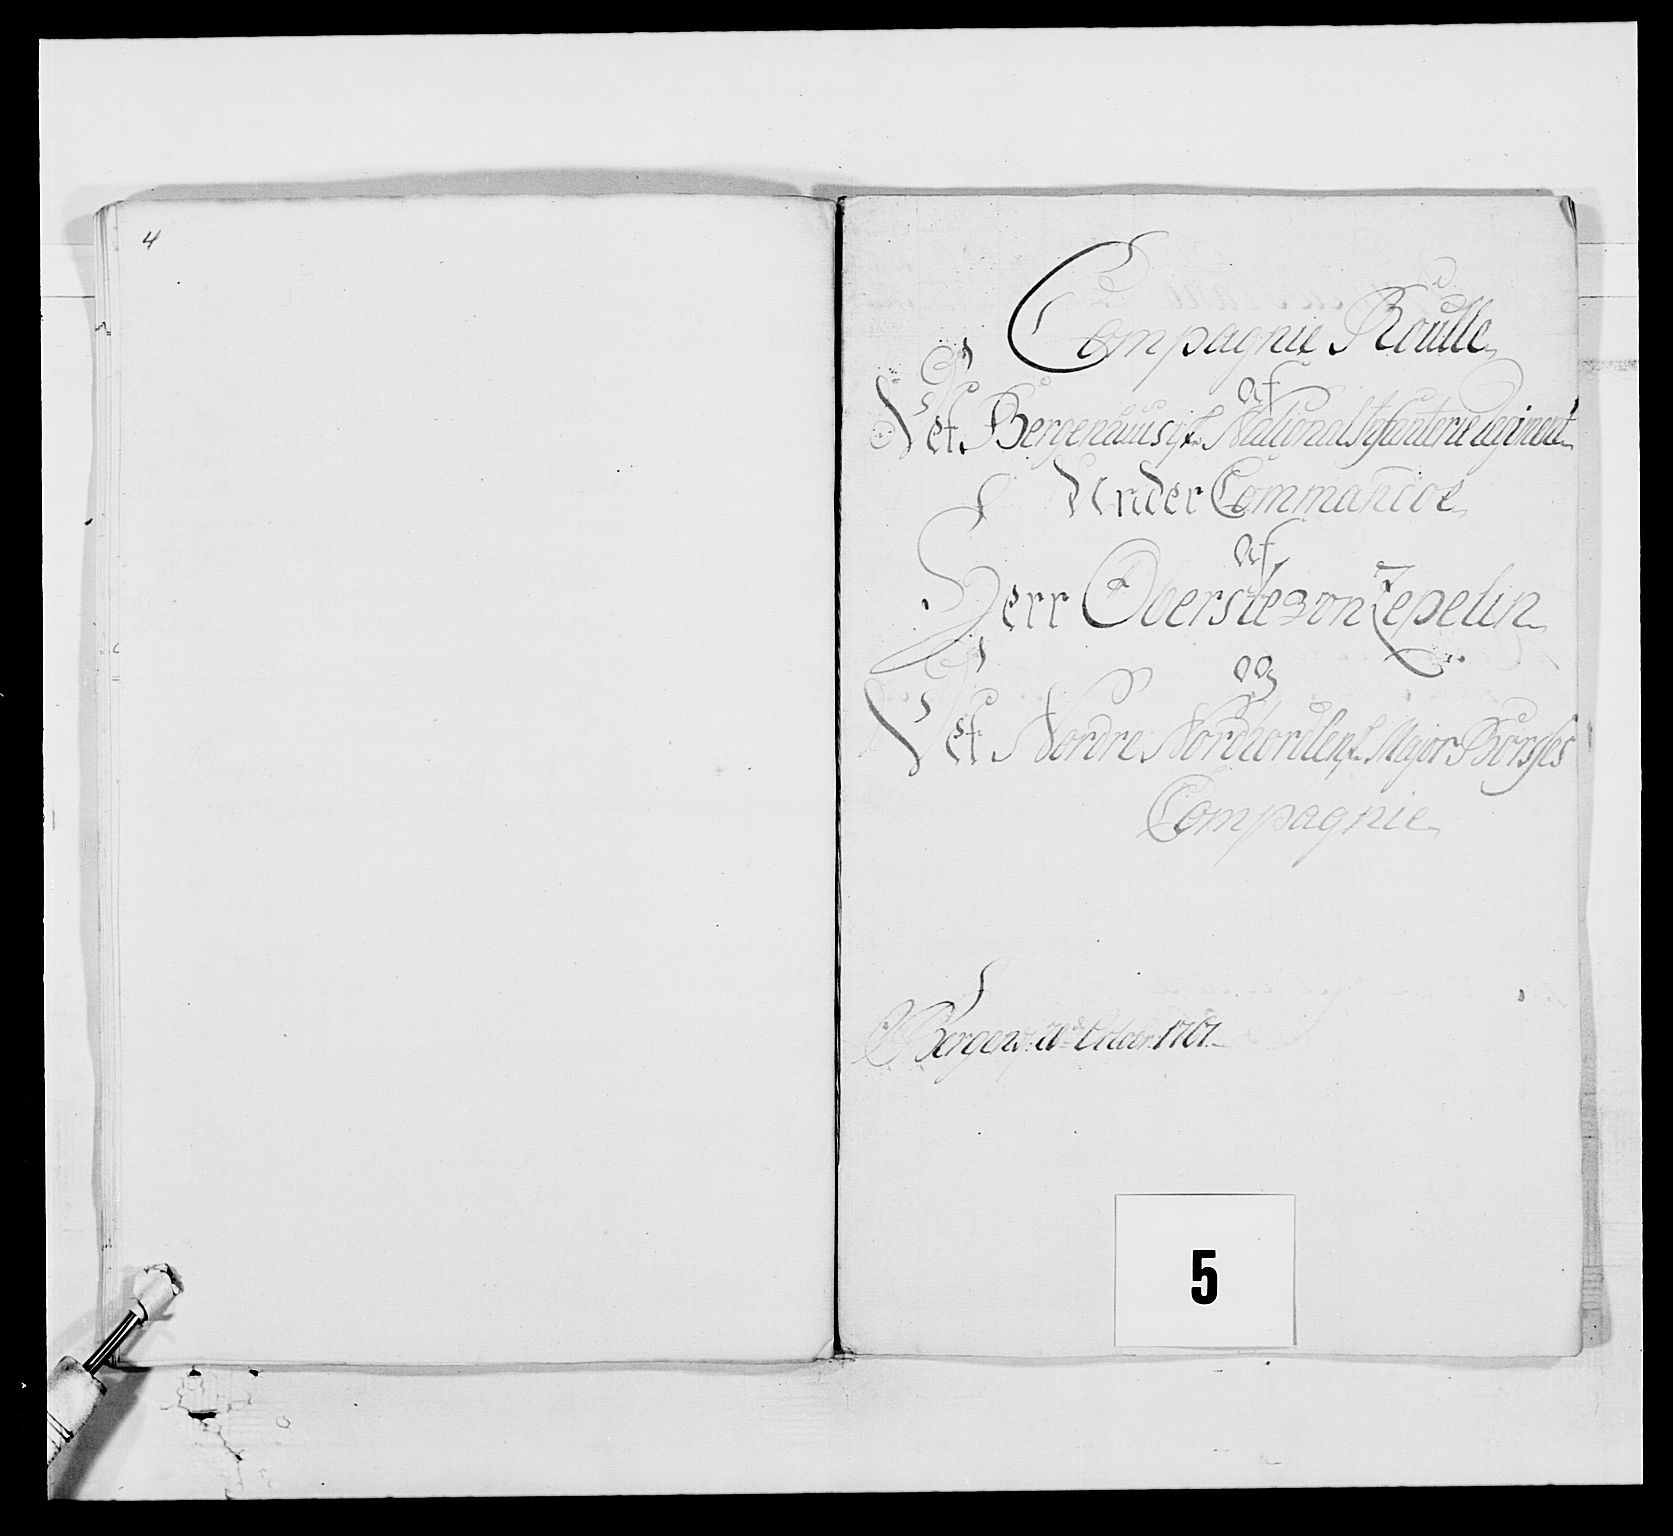 4
Compagnie Roulle
af
Det Bergenhuusiske National Infanterie regiment
Under Commando
af
Herr Oberste von Zepelin
og
Det Nordre Nordhordlenske Major Børses
Compagnie
Bergen d. 1767.
5